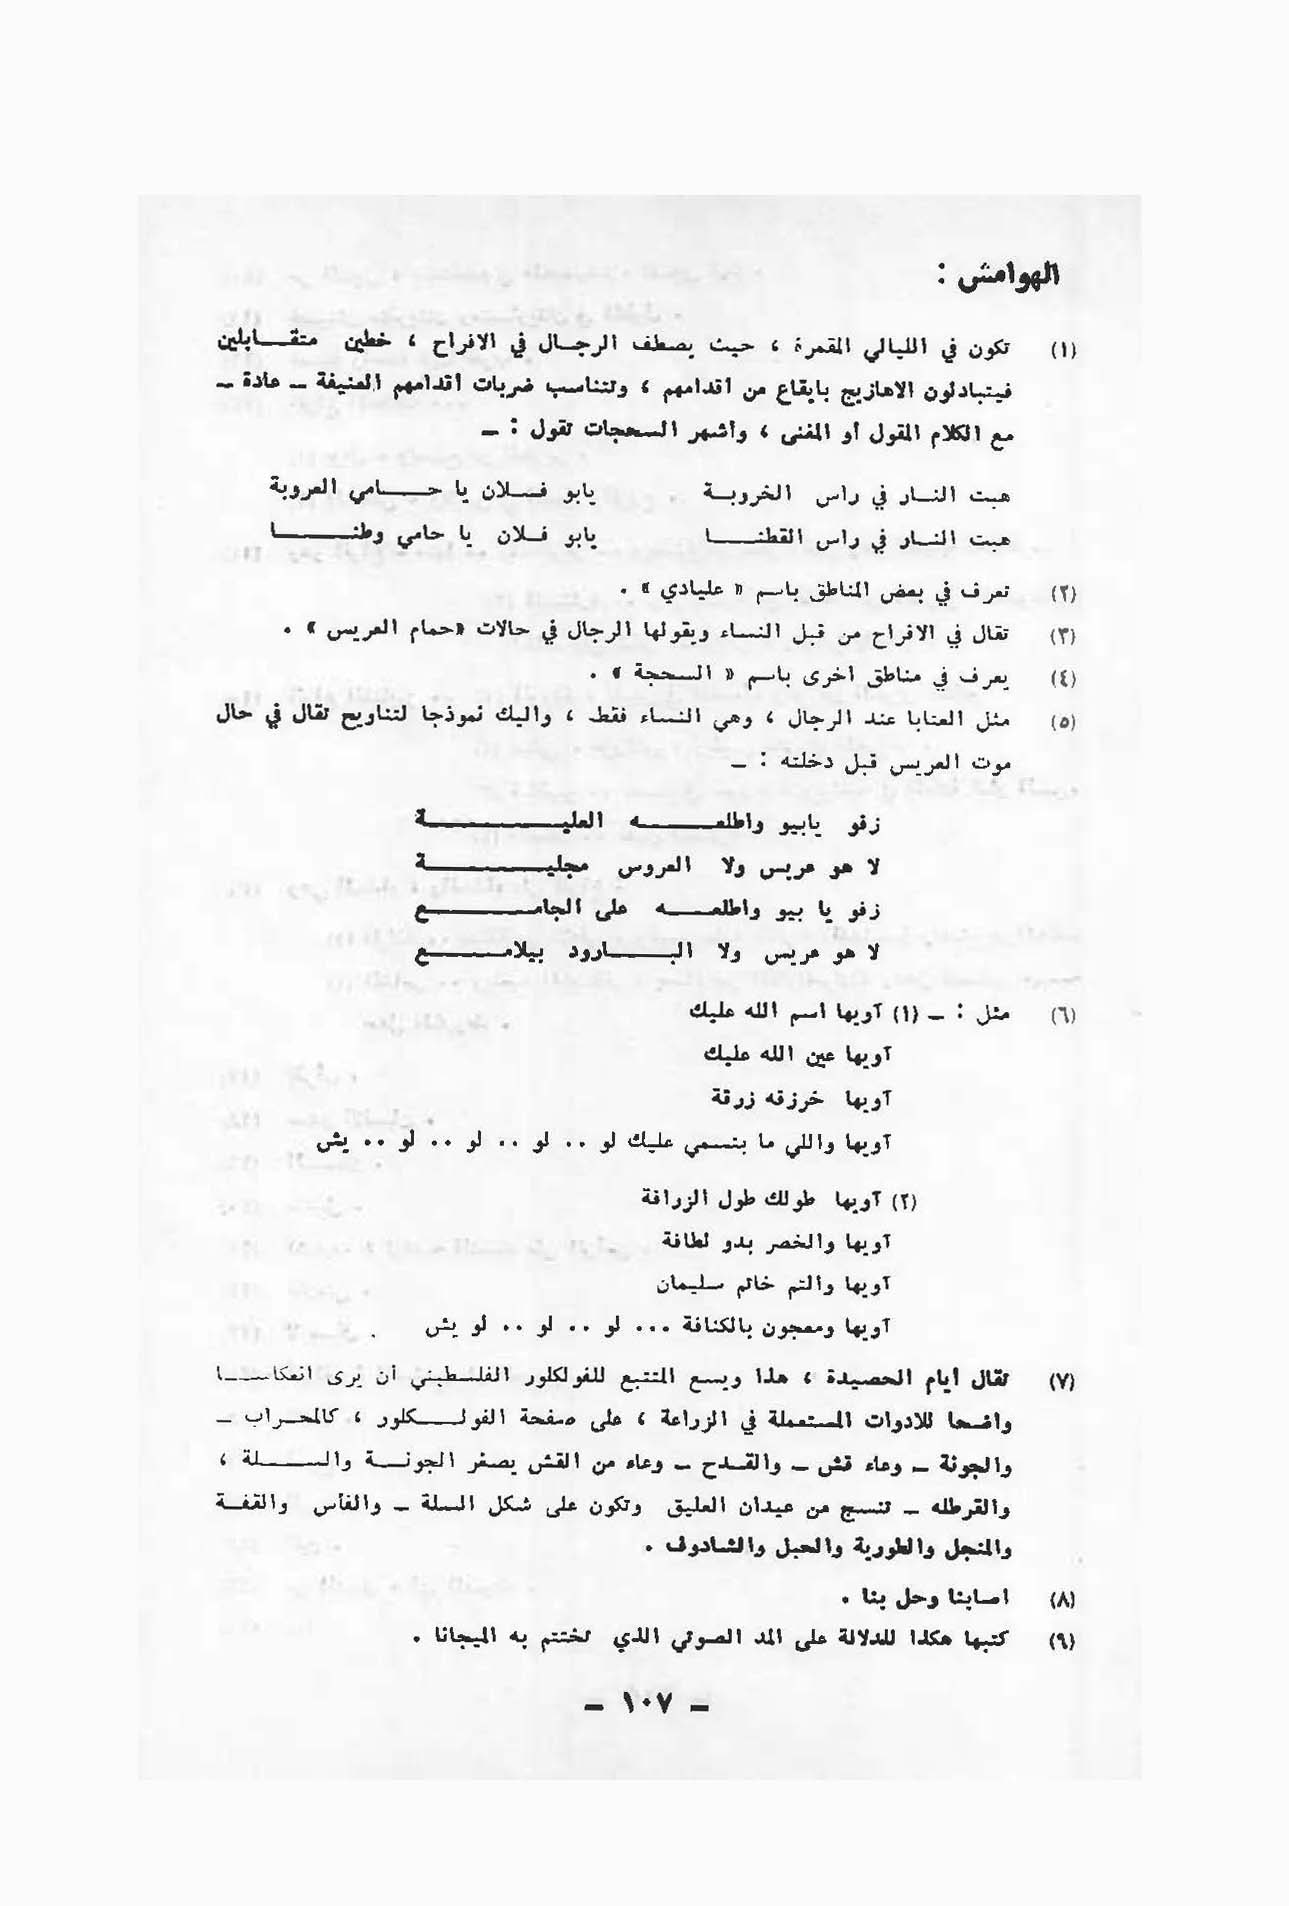 الهوامش :
(١) تكون في الليالي المقمرة ، حيث يصطف الرجال في الافراح ، خطين متقابلين
فيتبادلون الاهازيج بايقاع من أقدامهم ، وتتناسب ضربات أقدامهم العنيفة – عادة –
مع الكلام المقول أو المغنى ، وأشهر السحجات تقول : –
هبت النار في راس الخروبة يابو فلان يا حامي العروبة
هبت النار في راس القطنا يابو فلان يا حامي وطنا
(٢) تعرف في بعض المناطق باسم « عليادي » .
(٣) تقال في الافراح من قبل النساء ويقولها الرجال في حالات «حمام العريس » .
(٤) يعرف في مناطق اخرى باسم « السحجة » .
(٥) مثل العتابا عند الرجال ، وهي النساء فقط ، واليك نموذجا لتناويح تقال في حال
موت العريس قبل دخلته : –
زفو يابيو واطلعه العلية
لا هو عريس ولا العروس مجلية
زفو يا بيو واطلعه على الجامع
لا هو عريس ولا البارود بيلامع
(٦) مثل : – (١) آويها اسم الله عليك
آويها عين الله عليك
آويها خرزقه زرقة
آويها واللي ما بتسمي عليك لو .. لو .. لو .. لو .. يش
(٢) آويها طولك طول الزرافة
آويها والخصر بدو لطافة
آويها والتم خاتم سليمان
آويها ومعجون بالكنافة ... لو .. لو .. لو يش
(٧) تقال أيام الحصيدة ، هذا ويسع المتتبع للفولكلور الفلسطيني أن يرى انعكاسا
واضحا للادوات المستعملة في الزراعة ، على صفحة الفولكلور ، كالمحراب –
والجونة – وعاء قش – والقدح – وعاء من القش يصغر الجونة والسلة ،
والقرطله – تنسج من عيدان العليق وتكون على شكل السلة – والفأس والقفة
والمنجل والطورية والحبل والشادوف .
(٨) اصابنا وحل بنا .
(٩) كتبها هكذا للدلالة على المد الصوتي الذي تختتم به الميجانا .
– ١٠٧ –